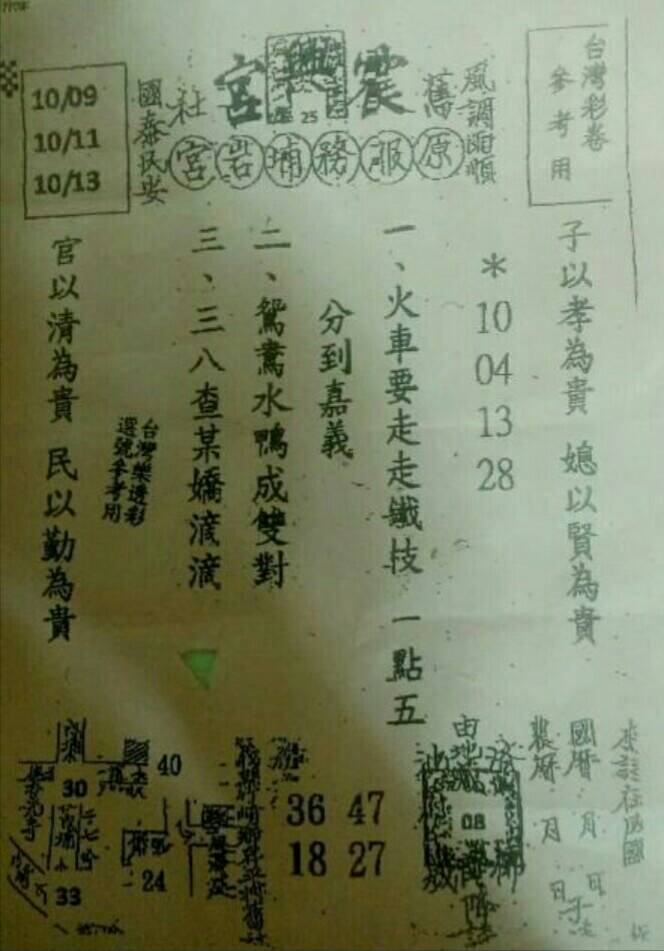 台灣彩卷
參考用
風調雨順
舊震興宮社
25
原服務埔岩宮
國泰民安
10/09
10/11
10/13
子以孝為貴 媳以賢為貴
*10 04 13 28
一、火車要走走鐵枝 一點五
分到嘉義
二、鴛鴦水鴨成雙對
三、三八查某嬌滴滴
台灣樂透彩
選號參考用
官以清為貴 民以勤為貴
國曆 月 日
農曆 月 日
08
36 47
18 27
40
24
30
33